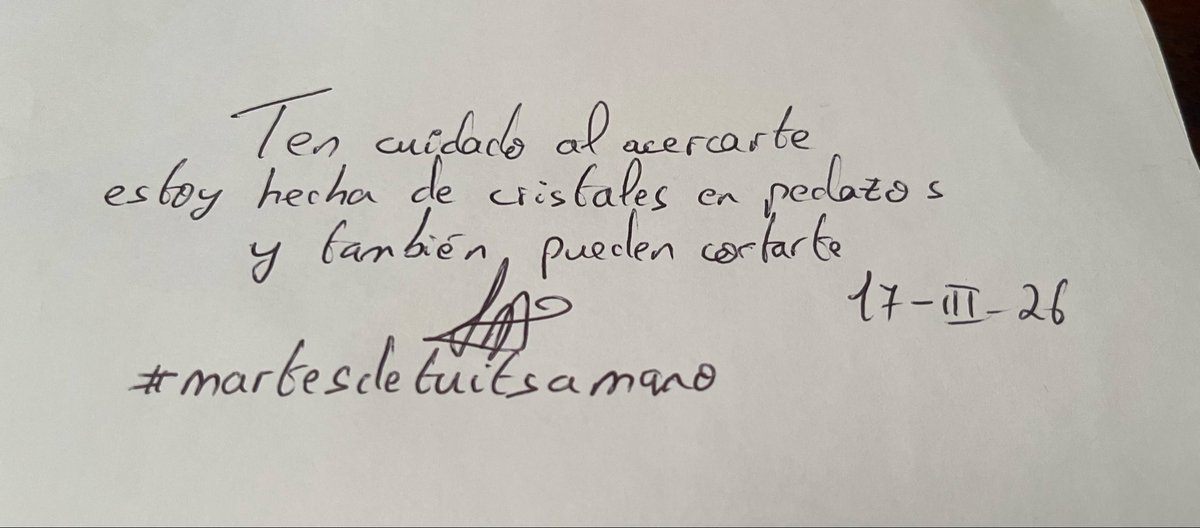 Ten cuidado al acercarte
estoy hecha de cristales en pedazos
y también pueden cortarte
17-III-26
#martesdetuitsamano